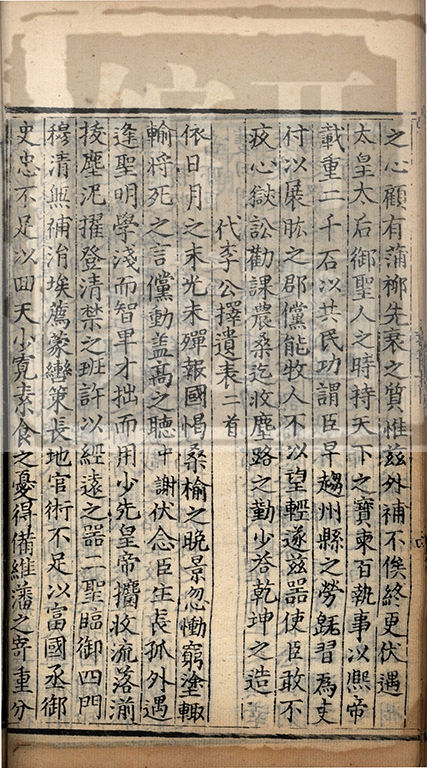 之心顧有蒲栁先衰之質惟兹外補不俟終更伏遇
太皇太后御聖人之時持天下之寶柬百執事以熙帝
載重二千石以共民功謂臣早趨州縣之勞旣習為吏
付以股肱之郡儻能牧人不以望輕遂兹器使臣敢不
疚心獄訟勸課農桑迄收塵路之勤少荅乾坤之造
代李公擇遺表二首
依日月之末光未殫報國愒桑榆之晚景忽慟窮塗輙
輸將死之言儻動盖髙之聽中謝伏念臣生長孤外遇
逢聖明學淺而智卑才拙而用少先皇帝擢收流落湔
拔塵汚擢登清禁之班許以經遠之器二聖臨御四門
穆清無補治埃薦蒙轡策長地官術不足以富國丞御
史忠不足以回天少寬素食之憂得備維藩之寄重分